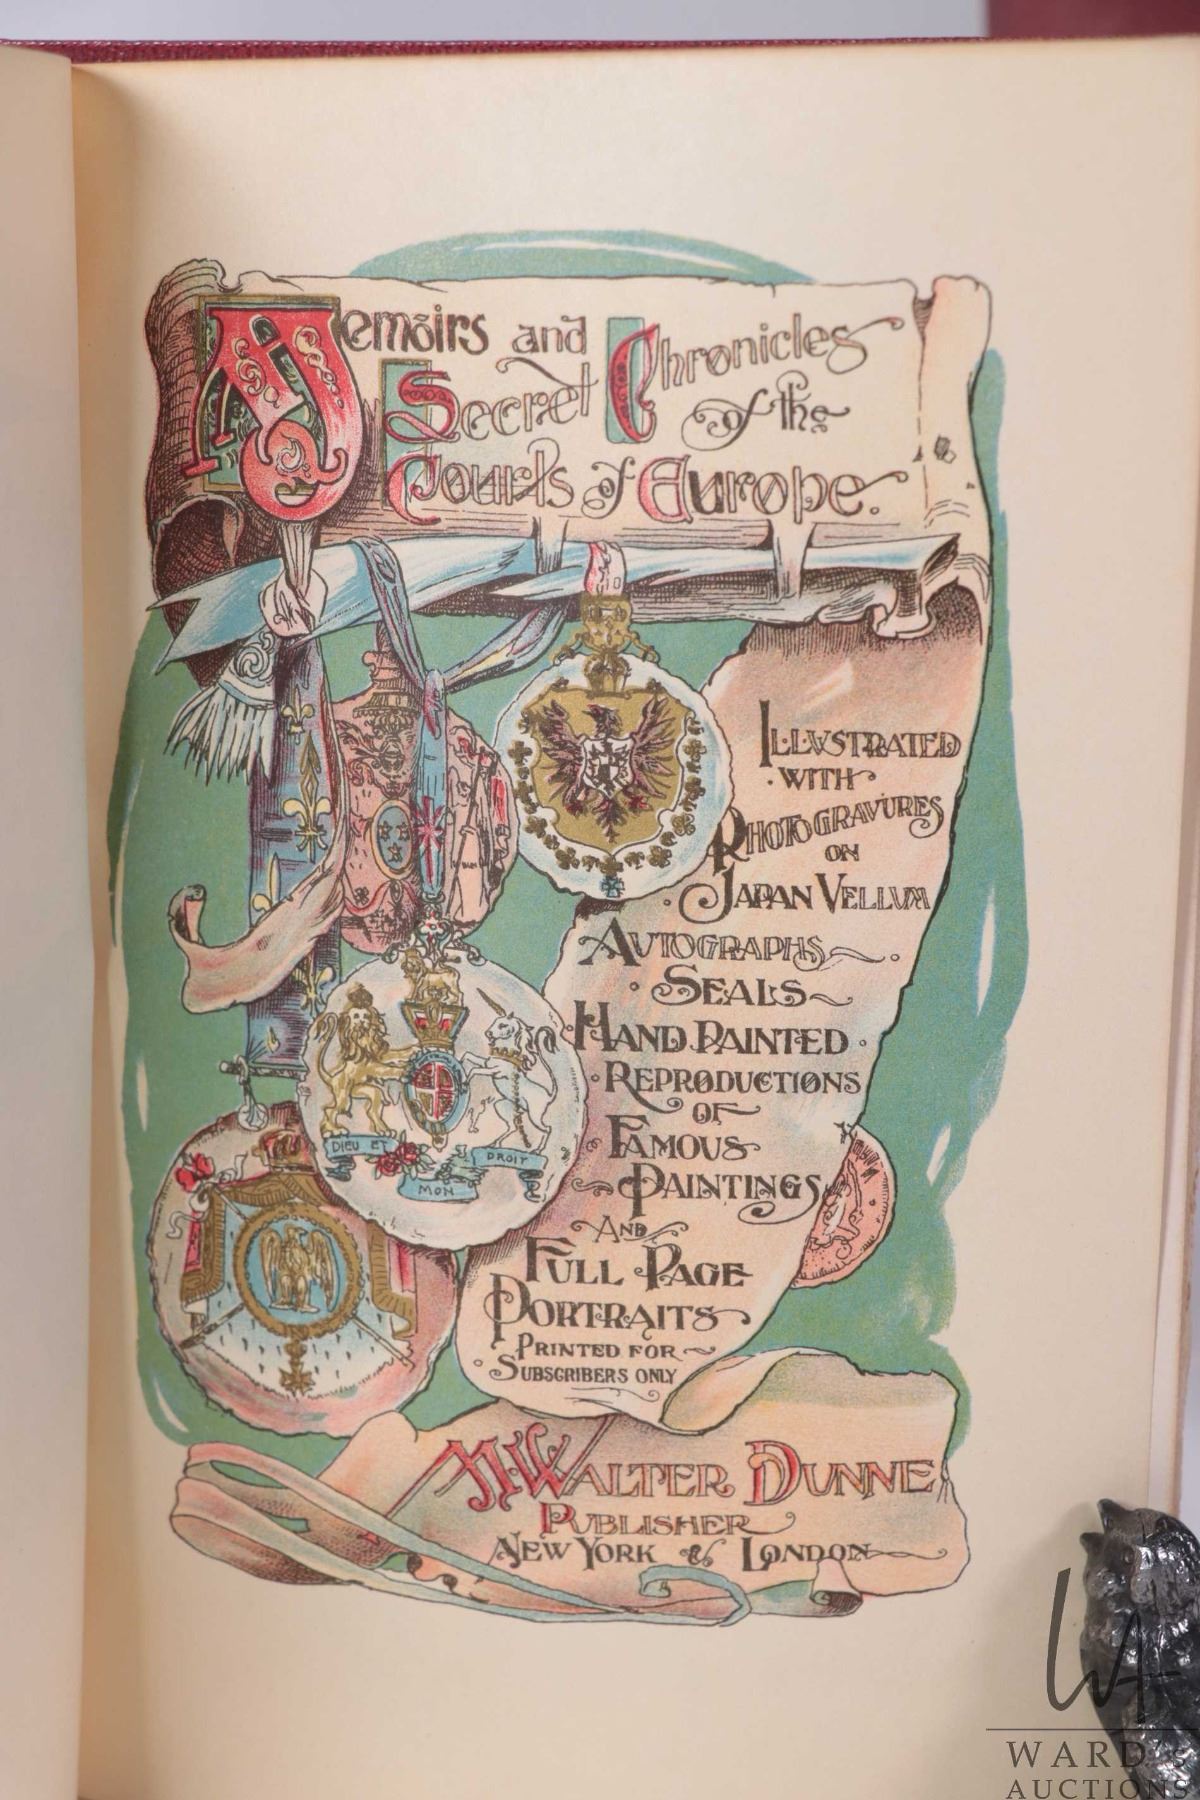 Memoirs and
Secret Chronicles
of the
Courts of Europe.
ILLUSTRATED
WITH
PHOTOGRAVURES
ON
JAPAN VELLUM
AUTOGRAPHS
SEALS
HAND PAINTED
REPRODUCTIONS
OF
FAMOUS
PAINTINGS
AND
FULL PAGE
PORTRAITS
PRINTED FOR
SUBSCRIBERS ONLY
DIEU ET
MON
DROIT
M. WALTER DUNNE
PUBLISHER
NEW YORK & LONDON
WA
WARD's
AUCTIONS